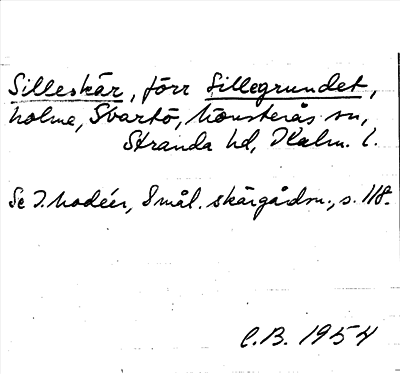 Silleskär, förr Sillegrundet,
holme, Svartö, Mönsterås sn,
Stranda hd, Kalm. l.
Se I. Modéer, Smål. skärgårdsn., s. 118.
C.B. 1954